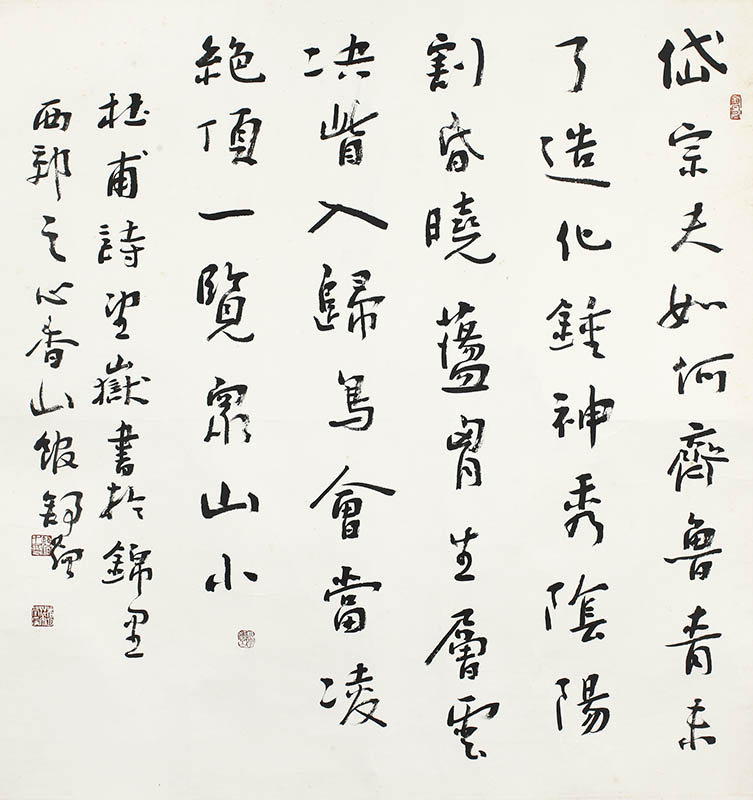 岱宗夫如何齊魯青未
了造化鍾神秀陰陽
割昏曉蘯胷生層雲
决眥入歸鳥會當凌
絕頂一覽眾山小
杜甫詩望嶽書於錦里
西郊之心香山館舒炯